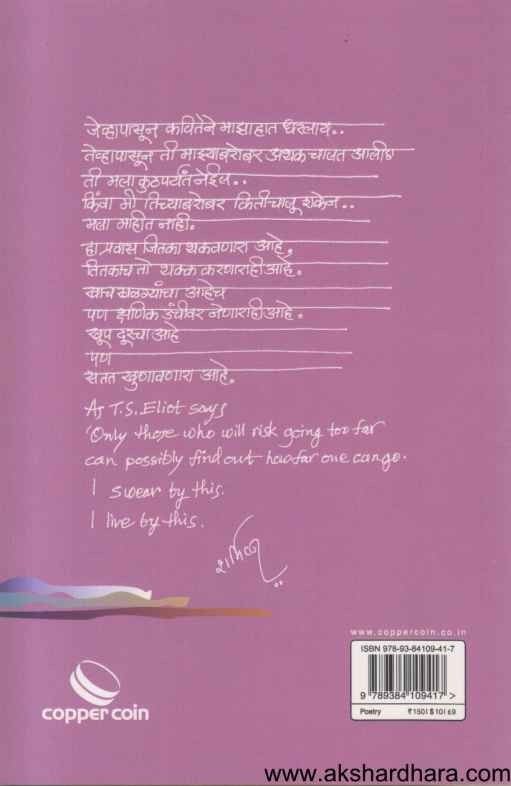 जेव्हापासून कवितेने माझा हात धरलाय..
तेव्हापासून ती माझ्याबरोबर अथक चालत आलीए
ती मला कुठपर्यंत नेईल..
किंवा मी तिच्याबरोबर किती चालू शकेन..
मला माहीत नाही.
हा प्रवास जितका थकवणारा आहे,
तितकाच तो थक्क करणाराही आहे.
खाच खळग्यांचा आहेच
पण क्षणिक उंचीवर नेणाराही आहे.
खूप दूरचा आहे
पण
सतत खुणावणारा आहे.
As T.S. Eliot says
'Only those who will risk going too far
can possibly find out how far one can go.
I swear by this.
I live by this.
www.coppercoin.co.in
ISBN 978-93-84109-41-7
9 789384 109417 >
Poetry ₹150 I $10 I £9
copper coin
www.akshardhara.com